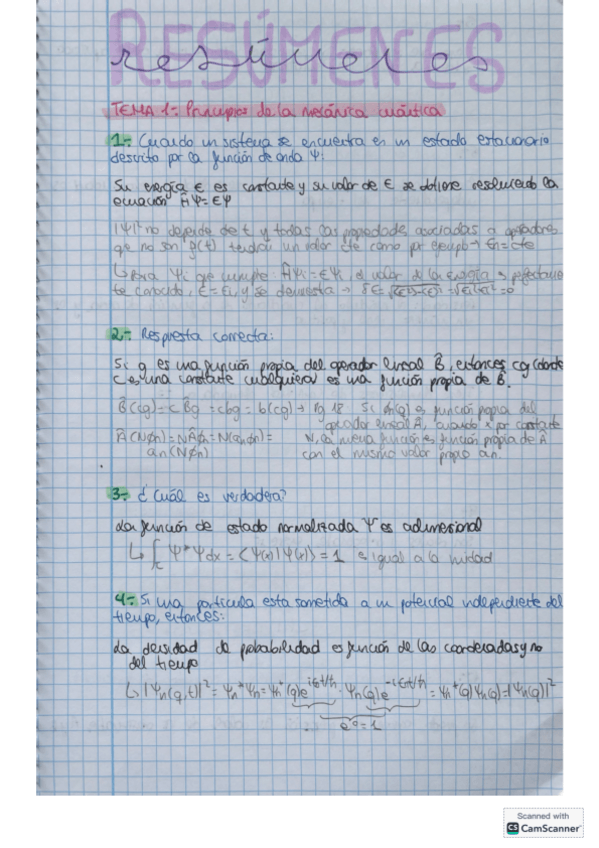 RESÚMENES
resúmenes
TEMA 1: Principios de la mecánica cuántica
1- Cuando un sistema se encuentra en un estado estacionario
descrito por la función de onda Ψ:
Su energía E es constante y su valor de E se obtiene resolviendo la
ecuación ĤΨ=EΨ
|Ψ|² no depende de t y todas las propiedades asociadas a operadores
que no son f(t) tendrán un valor cte como por ejemplo → En=cte
↳ Para Ψi que cumple: ĤΨi=EΨi, el valor de la energía es perfectamen
te conocido, E=Ei, y se demuestra → δE=√<E²>-<E>²=√Ei²-Ei²=0
2- Respuesta correcta:
Si g es una función propia del operador lineal B̂, entonces cg (donde
c es una constante cualquiera) es una función propia de B̂.
B̂(cg)=cB̂g=cbg=b(cg) → Pg 18 Si Φn(q) es función propia del
operador lineal Â, cuando x por constante
Â(NΦn)=NÂΦn=N(anΦn)= N, la nueva función es función propia de Â
an(NΦn) con el mismo valor propio an.
3- ¿Cuál es verdadera?
La función de estado normalizada Ψ es adimensional
↳ ∫ Ψ*Ψdx = <Ψ(x)|Ψ(x)> = 1 es igual a la unidad
4- Si una partícula esta sometida a un potencial independiente del
tiempo, entonces:
La densidad de probabilidad es función de las coordenadas y no
del tiempo
↳ |Ψn(q,t)|² = Ψn*Ψn = Ψn*(q)e^iEt/ħ · Ψn(q)e^-iEt/ħ = Ψn*(q)Ψn(q)=|Ψn(q)|²
e⁰=1
Scanned with
CS CamScanner